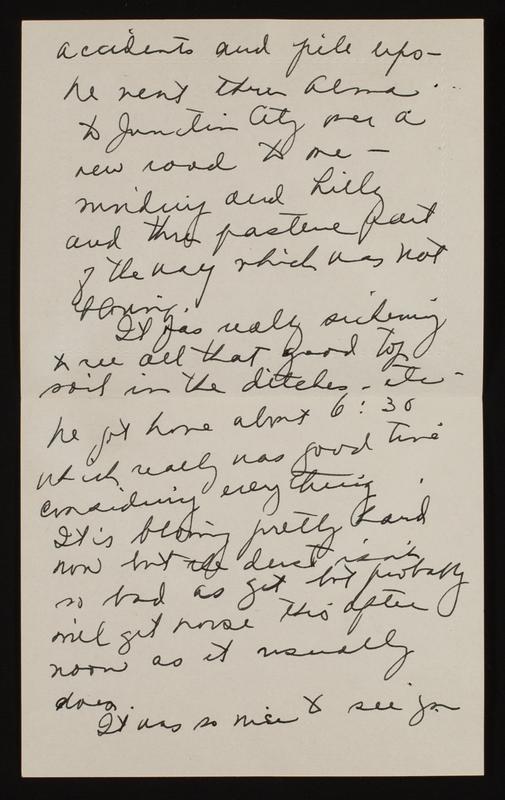 accidents and pile ups -
he went thru Alma
to Junction City over a
new road to me -
winding and hilly
and thru pasture part
of the way which was not
blowing.
It was really sickening
to see all that good top
soil in the ditches - etc -
he got home about 6:30
which really was good time
considering everything.
It is blowing pretty hard
now but the dust isn't
so bad as yet but probably
will get worse this after
noon as it usually
does.
It was so nice to see you